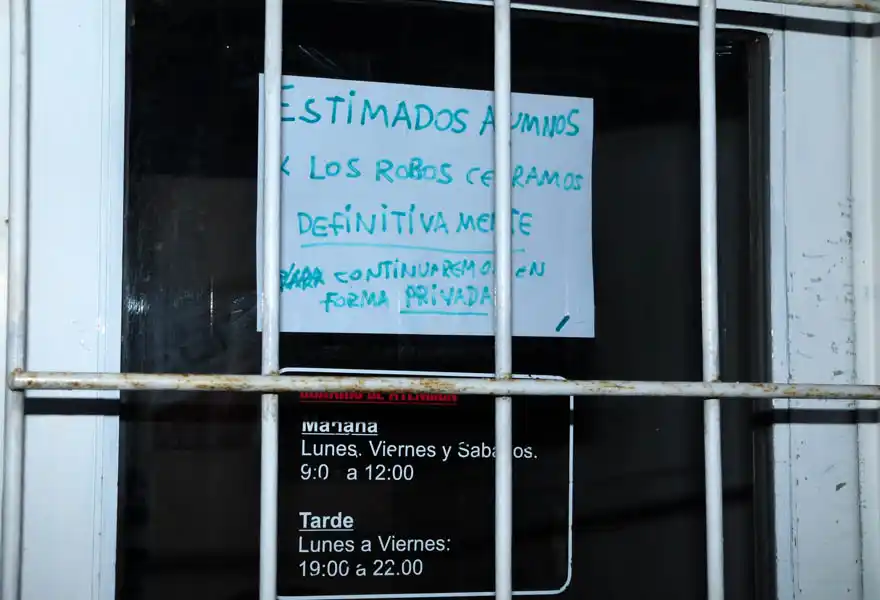 ESTIMADOS ALUMNOS
X LOS ROBOS CERRAMOS
DEFINITIVAMENTE
CONTINUAREMOS EN
FORMA PRIVADA
HORARIO DE ATENCION
Mañana
Lunes, Viernes y Sabados.
9:00 a 12:00
Tarde
Lunes a Viernes:
19:00 a 22.00